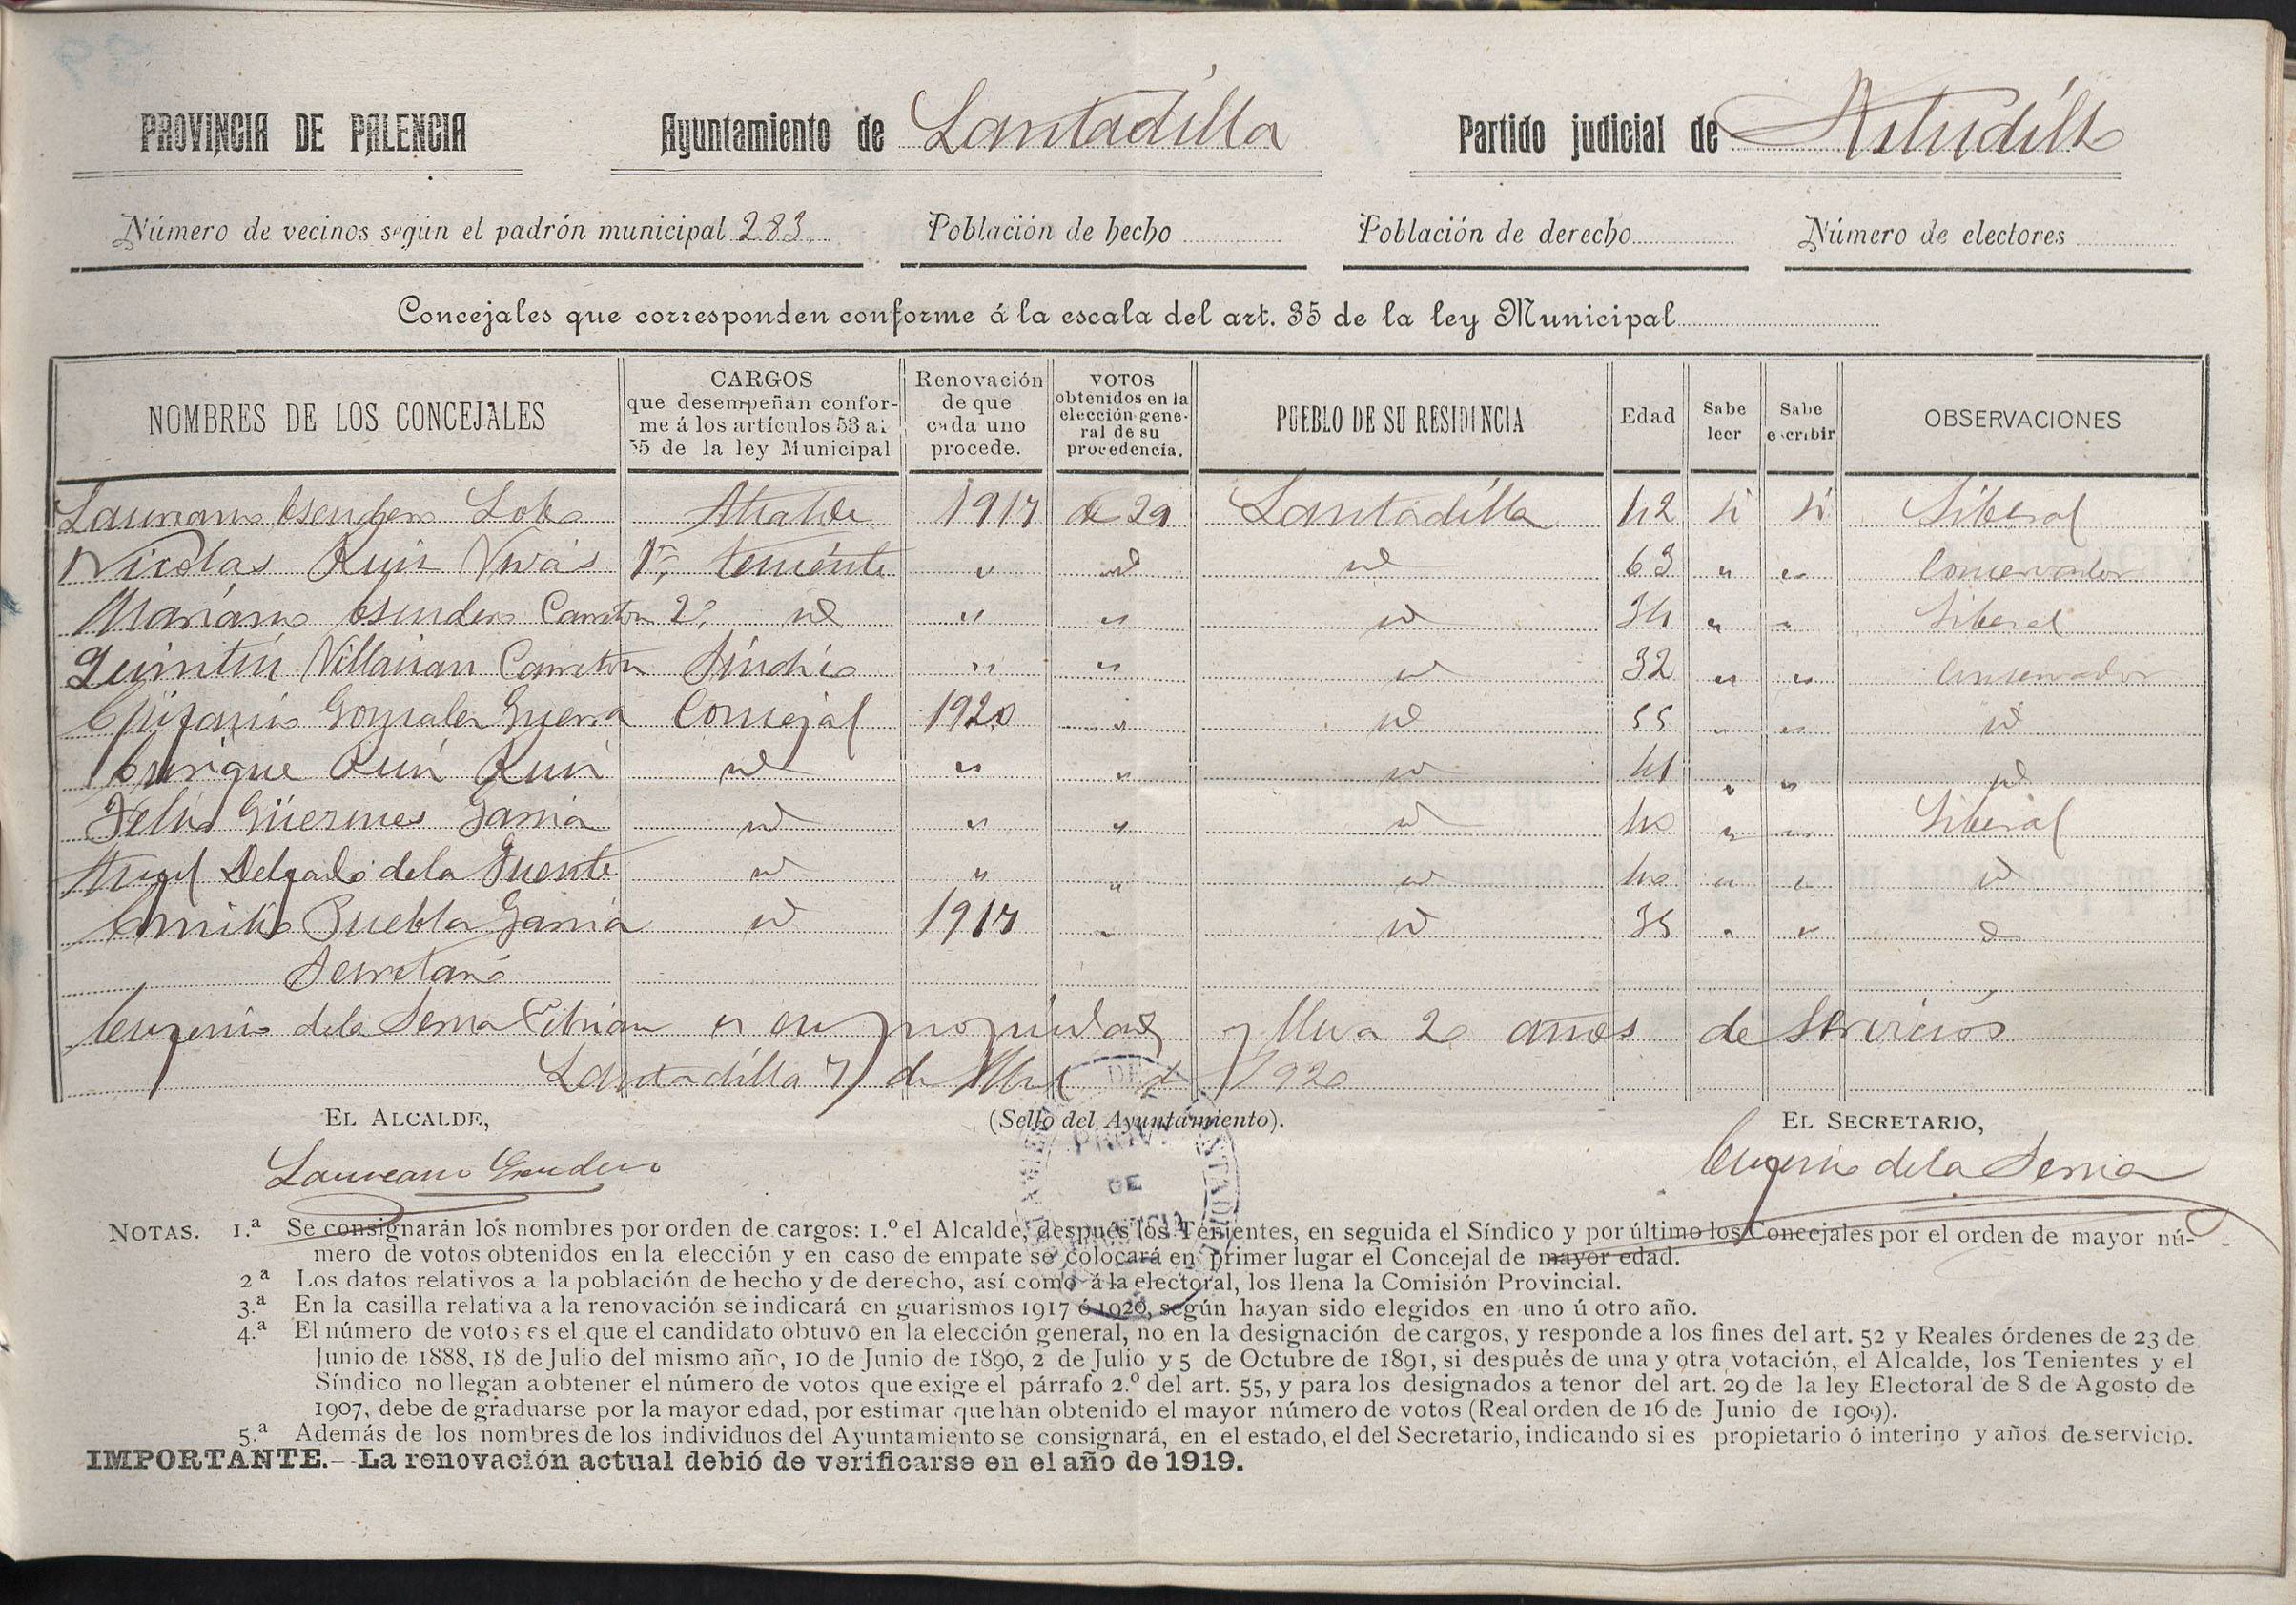 PROVINCIA DE PALENCIA Ayuntamiento de Lantadilla Partido judicial de Astudillo
Número de vecinos según el padrón municipal 283. Población de hecho Población de derecho Número de electores
Concejales que corresponden conforme á la escala del art. 35 de la ley Municipal
NOMBRES DE LOS CONCEJALES
CARGOS
que desempeñan confor-
me á los artículos 53 al
55 de la ley Municipal
Renovación
de que
cada uno
procede.
VOTOS
obtenidos en la
elección gene-
ral de su
procedencia.
PUEBLO DE SU RESIDENCIA
Edad
Sabe
leer
Sabe
escribir
OBSERVACIONES
Laureano Escudero Lobo Alcalde 1917 29 Lantadilla 42 si si Liberal
Nicolas Ruiz Vivas 1er teniente " id id 63 " " Conservador
Mariano Escudero Carreton 2º id " " id 34 " " Liberal
Quintin Villaizan Carreton Sindico " " id 32 " " Conservador
Epifanio Gonzalez Guerra Concejal 1920 " id 55 " " id
Enrique Ruiz Ruiz id " " id 41 " " id
Felix Güermes Garcia id " " id 40 " " Liberal
Angel Delgado de la Fuente id " " id 40 " " id
Emilio Puebla Garcia id 1917 " id 35 " " id
Secretario
Eugenio de la Serna Cibrian es en propiedad y lleva 20 años de servicios
Lantadilla 7 de Abril de 1920
EL ALCALDE, (Sello del Ayuntamiento). EL SECRETARIO,
Laureano Escudero Eugenio de la Serna
NOTAS. 1.ª Se consignarán los nombres por orden de cargos: 1.º el Alcalde, después los Tenientes, en seguida el Síndico y por último los Concejales por el orden de mayor nú-
mero de votos obtenidos en la elección y en caso de empate se colocará en primer lugar el Concejal de mayor edad.
2ª Los datos relativos a la población de hecho y de derecho, así como á la electoral, los llena la Comisión Provincial.
3.ª En la casilla relativa a la renovación se indicará en guarismos 1917 ó 1920, según hayan sido elegidos en uno ú otro año.
4.ª El número de votos es el que el candidato obtuvo en la elección general, no en la designación de cargos, y responde a los fines del art. 52 y Reales órdenes de 23 de
Junio de 1888, 18 de Julio del mismo año, 10 de Junio de 1890, 2 de Julio y 5 de Octubre de 1891, si después de una y otra votación, el Alcalde, los Tenientes y el
Síndico no llegan a obtener el número de votos que exige el párrafo 2.º del art. 55, y para los designados a tenor del art. 29 de la ley Electoral de 8 de Agosto de
1907, debe de graduarse por la mayor edad, por estimar que han obtenido el mayor número de votos (Real orden de 16 de Junio de 1909).
5.ª Además de los nombres de los individuos del Ayuntamiento se consignará, en el estado, el del Secretario, indicando si es propietario ó interino y años de servicio.
IMPORTANTE.—La renovación actual debió de verificarse en el año de 1919.